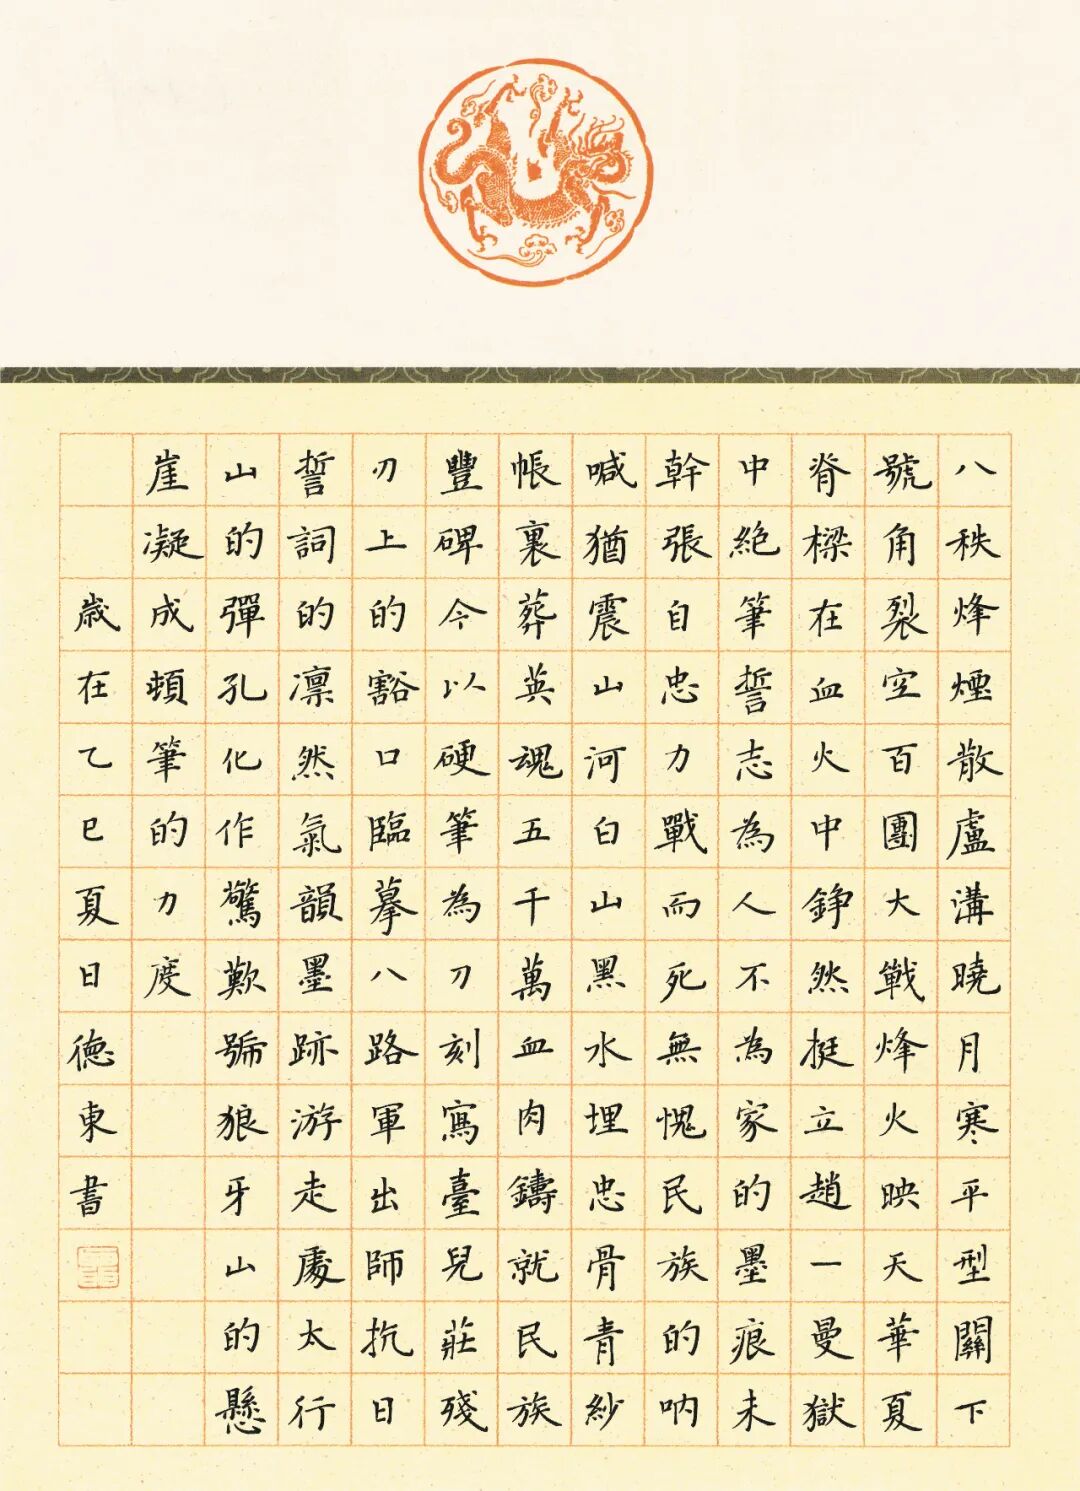 八秩烽煙散盧溝曉月寒平型關下
號角裂空百團大戰烽火映天華夏
脊樑在血火中錚然挺立趙一曼獄
中絶筆誓志為人不為家的墨痕未
幹張自忠力戰而死無愧民族的吶
喊猶震山河白山黑水埋忠骨青紗
帳裏葬英魂五千萬血肉鑄就民族
豐碑今以硬筆為刀刻寫臺兒莊殘
刃上的豁口臨摹八路軍出師抗日
誓詞的凛然氣韻墨跡游走處太行
山的彈孔化作驚歎號狼牙山的懸
崖凝成頓筆的力度
歲在乙巳夏日德東書